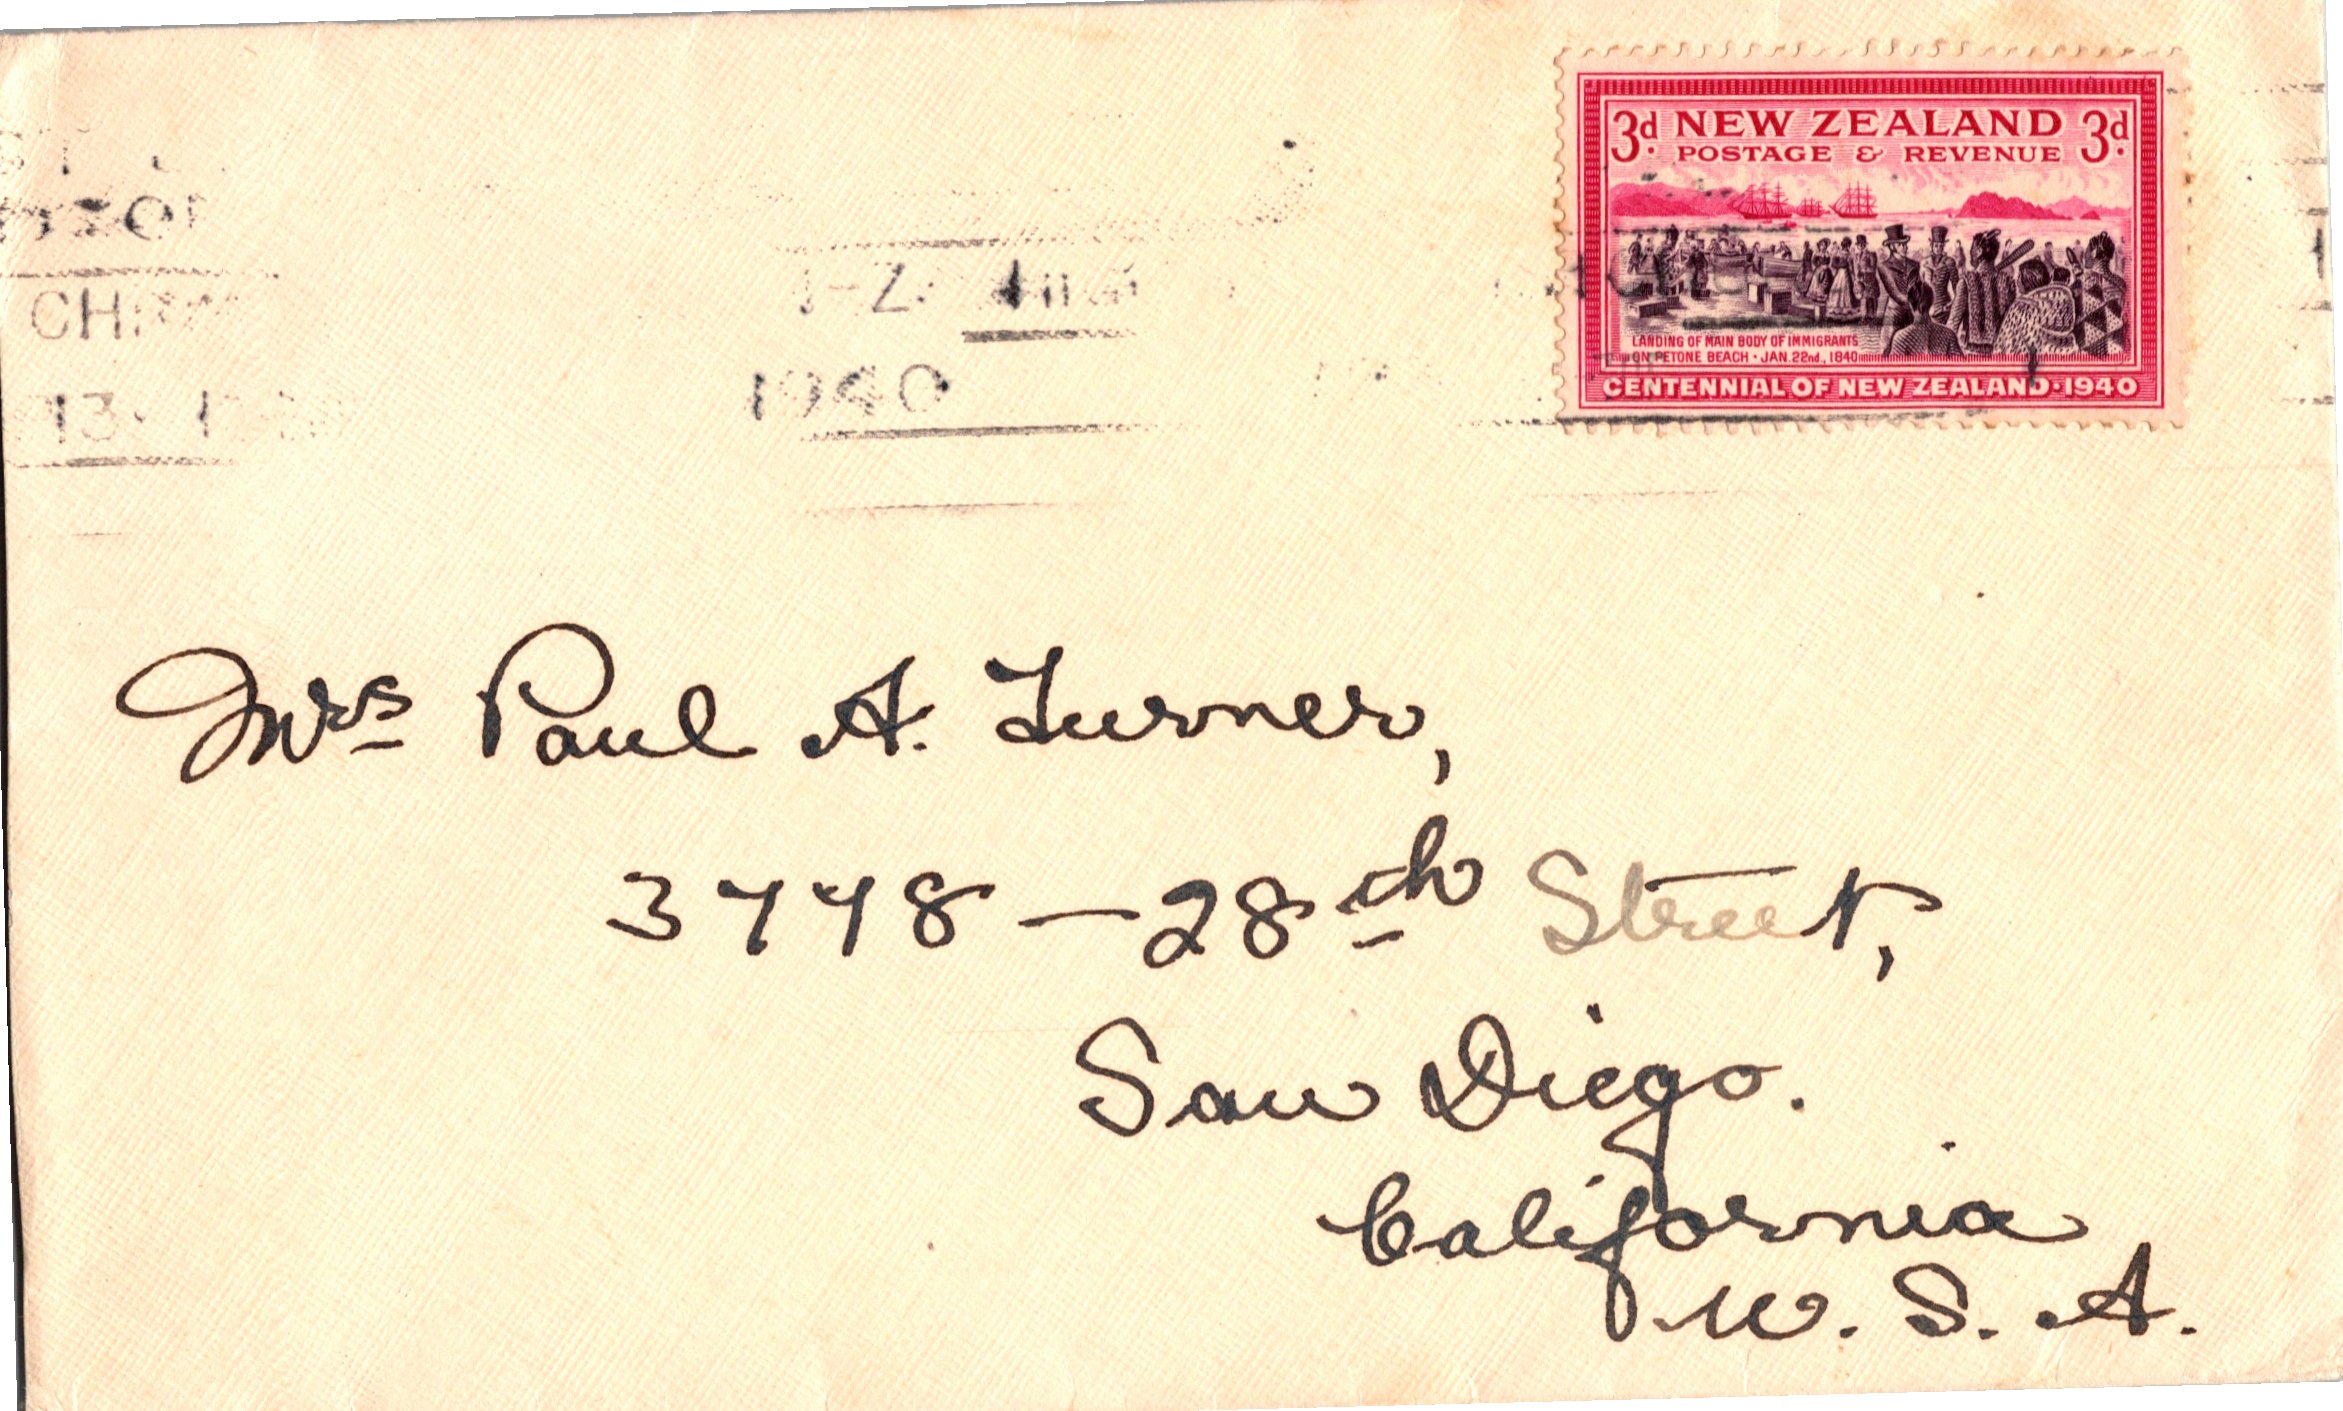 3d NEW ZEALAND 3d
POSTAGE & REVENUE
LANDING OF MAIN BODY OF IMMIGRANTS
ON PETONE BEACH · JAN. 22nd., 1840
CENTENNIAL OF NEW ZEALAND · 1940
1940
Mrs Paul A. Turner,
3778 — 28th Street,
San Diego.
California
U. S. A.